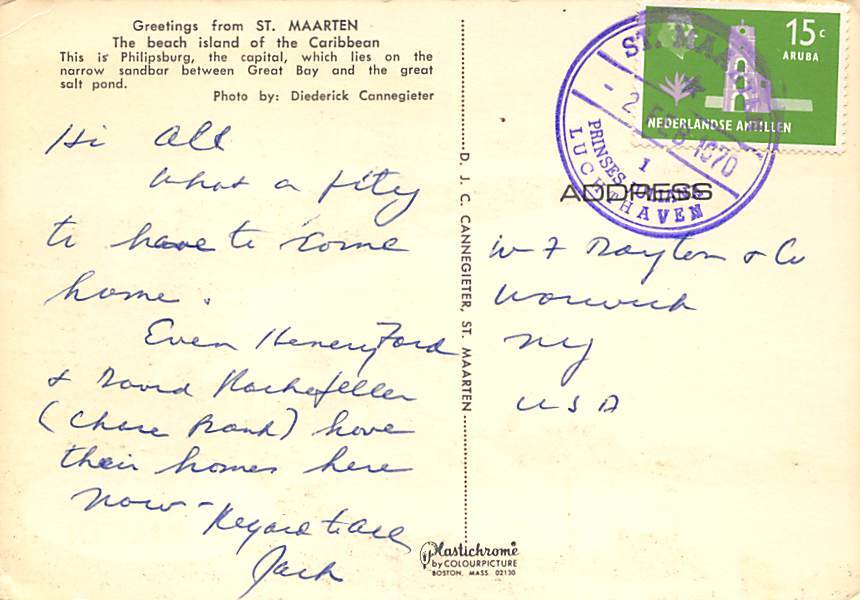 Greetings from ST. MAARTEN
The beach island of the Caribbean
This is Philipsburg, the capital, which lies on the
narrow sandbar between Great Bay and the great
salt pond.
Photo by: Diederick Cannegieter
Hi All
What a pity
to have to come
home.
Even Henery Ford
& David Rockefeller
(Chase Bank) have
their homes here
now - Regard to all
Jack
D. J. C. CANNEGIETER, ST. MAARTEN
Plastichrome
by COLOURPICTURE
BOSTON, MASS. 02130
15c
ARUBA
NEDERLANDSE ANTILLEN
ST. MAARTEN
- 2 FEB 1970
1
PRINSES JULIANA
LUCHTHAVEN
ADDRESS
W F Dayton & Co
Warwick
NY
USA